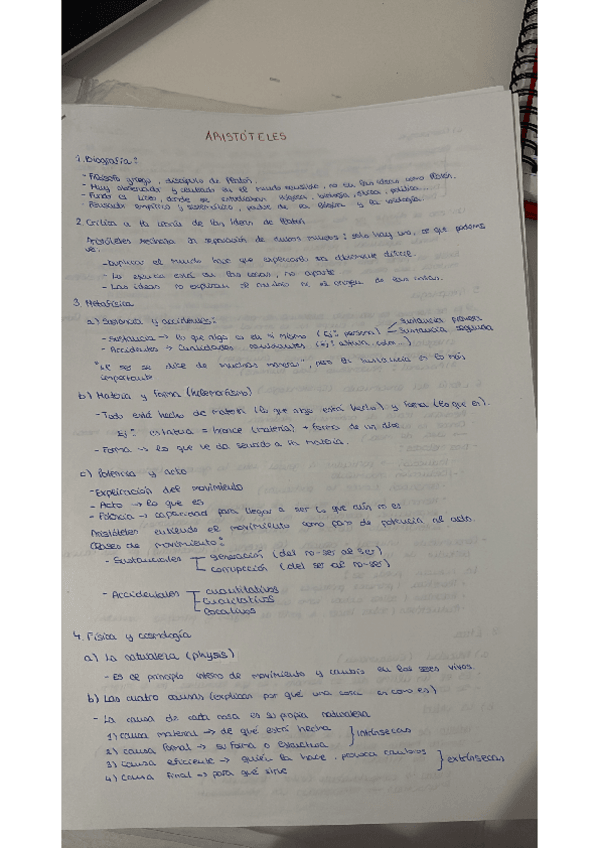 ARISTÓTELES
1. Biografía:
- Filósofo griego, discípulo de Platón.
- Muy interesado y centrado en el mundo sensible, no en las ideas como Platón.
- Fundó el Liceo, donde se estudiaban lógica, biología, ética, política....
- Pensador empírico y sistemático, padre de la lógica y la biología.
2. Crítica a la teoría de las Ideas de Platón
Aristóteles rechaza la separación de dos mundos: solo hay uno, el que podemos
ver.
- Duplicar el mundo hace que explicarlo sea doblemente difícil.
- La esencia está en las cosas, no aparte
- Las ideas no explican el cambio ni el origen de las cosas.
3. Metafísica
a) Sustancia y accidentes:
- Sustancia → lo que algo es en sí mismo (Ej: persona) sustancia primera
sustancia segunda
- Accidentes → cualidades cambiantes (Ej: altura, color...)
"el ser se dice de muchas maneras", pero la sustancia es la más
importante
b) Materia y Forma (hilemorfismo)
- Todo está hecho de materia (lo que algo está hecho) y forma (lo que es).
Ej: estatua = bronce (materia) + forma de un dios
- Forma → lo que le da sentido a la materia.
c) Potencia y acto
- Explicación del movimiento
- Acto → lo que es
- Potencia → capacidad para llegar a ser lo que aún no es
Aristóteles entiende el movimiento como paso de potencia al acto.
Clases de movimiento:
- Sustanciales generación (del no-ser al ser)
corrupción (del ser al no-ser)
- Accidentales cuantitativos
cualitativos
locativos
4. Física y cosmología
a) La naturaleza (physis)
- Es el principio interno de movimiento y cambio en los seres vivos.
b) Las cuatro causas (explican por qué una cosa es como es)
- La causa de cada cosa es su propia naturaleza
1) causa material → de qué está hecha
2) causa formal → su forma o estructura } intrínsecas
3) causa eficiente → quién la hace, provoca cambios
4) causa final → para qué sirve } extrínsecas